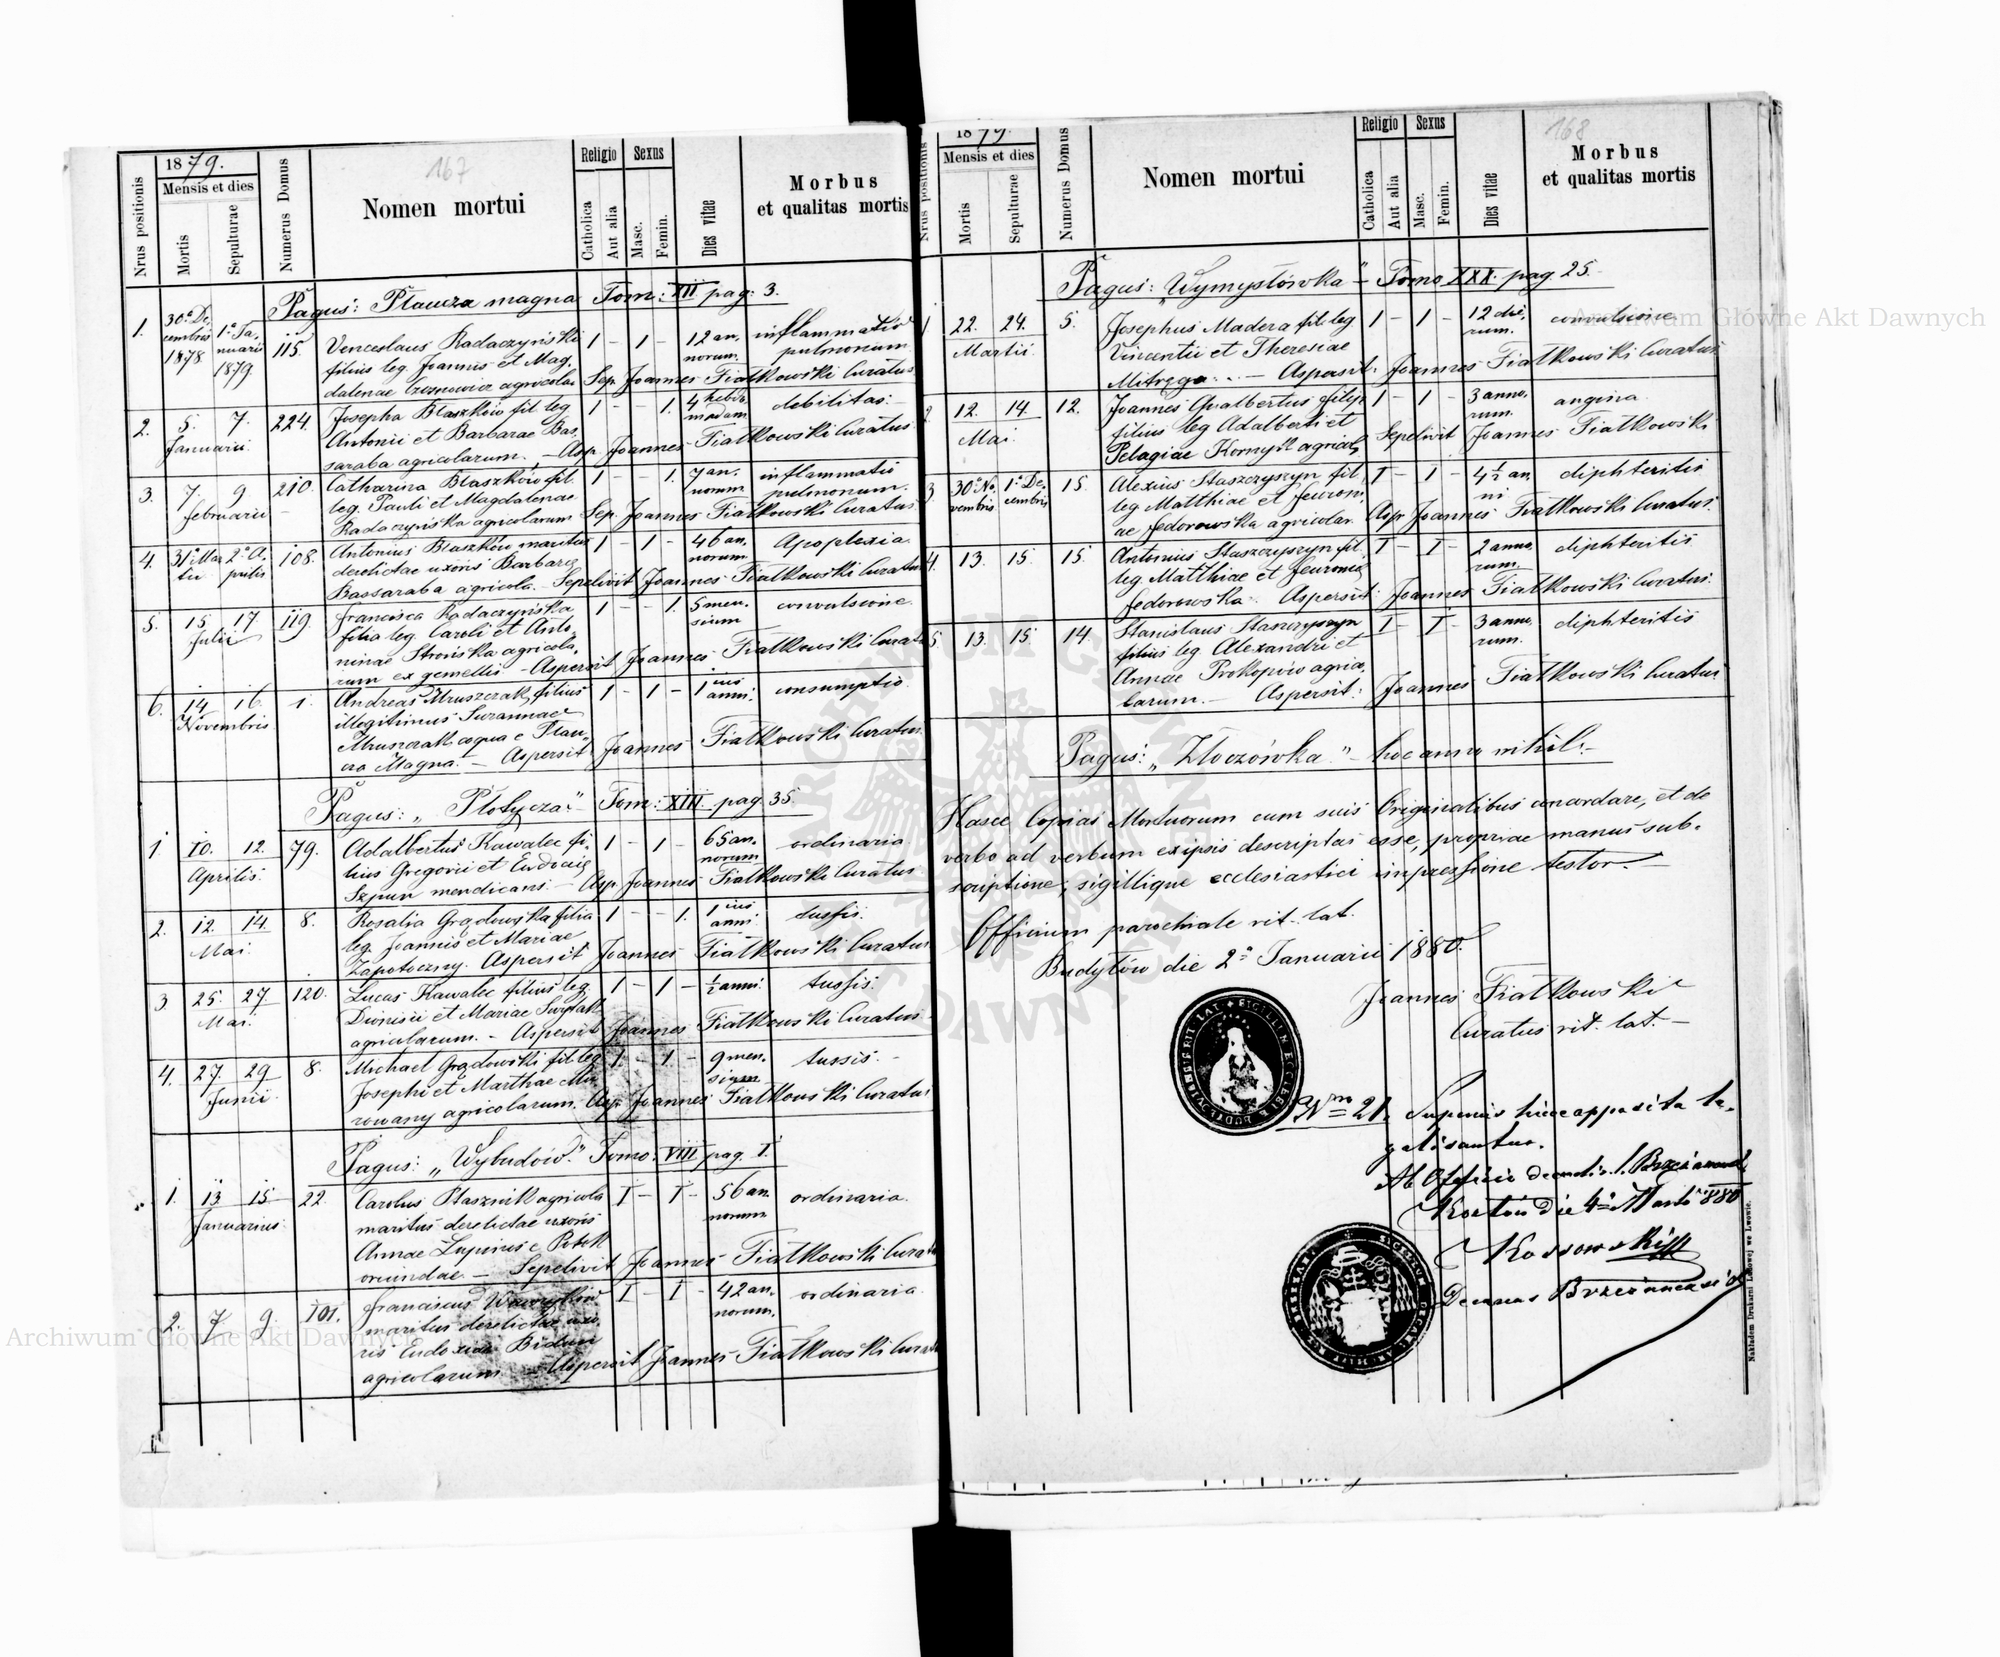 167
1879.
Nrus positionis
Mensis et dies
Mortis
Sepulturae
Numerus Domus
Nomen mortui
Religio
Catholica
Aut alia
Sexus
Masc.
Femin.
Dies vitae
Morbus
et qualitas mortis
Pagus: Płaucza magna Tom: XII pag: 3.
1. 30a De- 1a Ja- 115. Venceslaus Radaczyński 1 – 1 – 12 an- inflammatio
cembris nuarii filius leg. Joannis et Mag- norum pulmonum
1878 1879 dalenae agricolar Sep. Joannes Fiałkowski Curatus
2. 5. 7. 224. Josepha Błaszków fil. leg. 1 – – 1. 4 hebdo- debilitas
Januarii Antonii et Barbarae Bas- madum
saraba agricolarum. – Asp. Joannes Fiałkowski Curatus
3. 7 9 210. Catharina Błaszków fil. 1 – – 1. 7 an- inflammatio
Februarii leg. Pauli et Magdalenae norum pulmonum.
Radaczyńska agricolarum Sep. Joannes Fiałkowski Curatus
4. 31a Mar- 2a A- 108. Antonius Błaszków maritus 1 – 1 – 46 an- Apoplexia
tii prilis derelictae uxoris Barbarę norum
Bassaraba agricola. Sepelivit Joannes Fiałkowski Curatus
5. 15 17. 119. Francisca Radaczyńska 1 – – 1. 5 men- convulsione
Julii filia leg. Caroli et Anto- sium
ninae Strońska agricola-
rum ex gemellis – Aspersit Joannes Fiałkowski Curatus
6. 14 16. 1. Andreas Mruszczak filius 1 – 1 – 1 ius consumptio
Novembris illegitimus Suzannae anni
Mruszczak aqua e Płau-
cza Magna. – Aspersit Joannes Fiałkowski Curatus
Pagus: „Płotycza" Tom: XIII. pag. 35.
1. 10. 12. 79. Adalbertus Kawalec fi- 1 – 1 – 65 an- ordinaria
Aprilis lius Gregorii et Eudoxię norum
mendicans. – Asp. Joannes Fiałkowski Curatus
2. 12. 14. 8. Rosalia Grądowska filia 1 – – 1. 1 ius tussis.
Mai leg. Joannis et Mariae anni
Zapotoczny. Aspersit Joannes Fiałkowski Curatus
3 25. 27. 120. Lucas Kawalec filius leg. 1 – 1 – ½ anni tussis.
Mai. Dionisii et Mariae
agricolarum. – Aspersit Joannes Fiałkowski Curatus
4. 27. 29. 8. Michael Grądowski fil. leg. 1. – 1 – 9 men- tussis. –
Junii Josephi et Marthae Mu- sium
rowany agricolarum. Asp. Joannes Fiałkowski Curatus
Pagus: „Wybudów." Tomo: VIII pag. 1.
1. 13 15 22. Carolus Ptasznik agricola 1 – 1 – 56 an- ordinaria.
Januarius maritus derelictae uxoris norum
Annae Łupinis e Potok
oriundae – Sepelivit Joannes Fiałkowski Curatus
2. 7 9. 101. Franciscus 1 – 1 – 42 an- ordinaria
maritus derelictae uxo- norum.
ris Eudoxiae
agricolarum – Aspersit Joannes Fiałkowski Curatus
168
1879.
Nrus positionis
Mensis et dies
Mortis
Sepulturae
Numerus Domus
Nomen mortui
Religio
Catholica
Aut alia
Sexus
Masc.
Femin.
Dies vitae
Morbus
et qualitas mortis
Pagus: „Wymysłówka" – Tomo XXX. pag. 25. –
1 22. 24. 5. Josephus Madera fil. leg. 1 – 1 – 12 die- convulsione
Martii Vincentii et Theresiae rum.
Mitręga. – Aspersit: Joannes Fiałkowski Curatus
2. 12. 14. 12. Joannes Gualbertus 1 – 1 – 3 anno- angina.
Mai filius leg. Adalberti et rum.
Pelagiae Kornyk agricol. Sepelivit Joannes Fiałkowski
3. 30a No- 1a De- 15. Alexius Staszczyszyn fil. 1 – 1 – 4 ½ an- diphteritis
vembris cembris leg. Matthiae et Feuroni- ni
ae Fedorowska agricolar. Asp. Joannes Fiałkowski Curatus.
4. 13. 15 15. Antonius Staszczyszyn fil. 1 – 1 – 2 anno- diphteritis
leg. Matthiae et Feuronię rum.
Fedorowska. Aspersit: Joannes Fiałkowski Curatus.
5. 13. 15. 14. Stanislaus Staszczyszyn 1 – 1 – 3 anno- diphteritis
filius leg. Alexandri et rum.
Annae Prokopów agrico-
larum. – Aspersit: Joannes Fiałkowski Curatus
Pagus: „Złoczówka." – hoc anno nihil. –
Hasce Copias Mortuorum cum suis Originalibus concordare, et de
verbo ad verbum ex ipsis descriptas esse, propriae manus sub-
scriptione, sigillique ecclesiastici impressione testor. –
Officium parochiale rit. lat.
Budyłów die 2a Januarii 1880.
Joannes Fiałkowski
Curatus rit. lat. –
Nro 21. Superius hicce apposita le-
galisantur.
Ab Officio decanali r. l. Brzeżanensi
Kozłów die 4a Martii 880
Kossowski
Decanus Brzeżanensis
Nakładem Drukarni Ludowej we Lwowie.
Archiwum Główne Akt Dawnych
Archiwum Główne Akt Dawnych